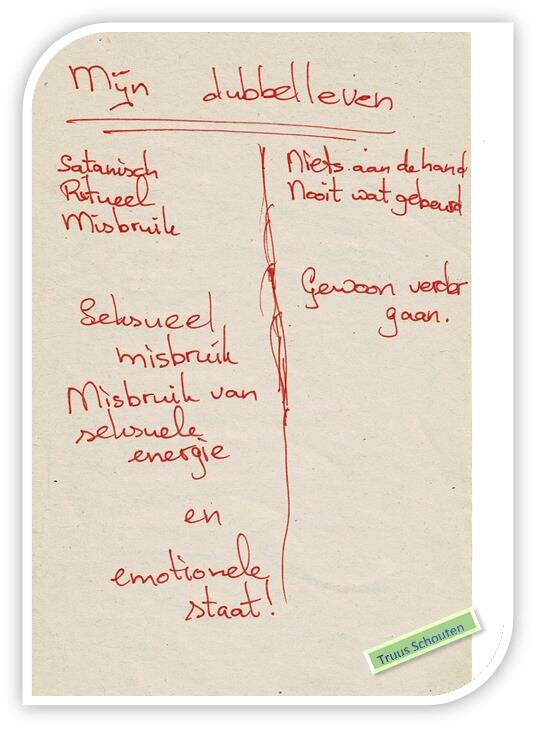 Mijn dubbelleven
Satanisch
Ritueel
Misbruik
Seksueel
misbruik
Misbruik van
seksuele
energie
en
emotionele
staat!
Niets aan de hand
Nooit wat gebeurd
Gewoon verder
gaan.
Truus Schouten